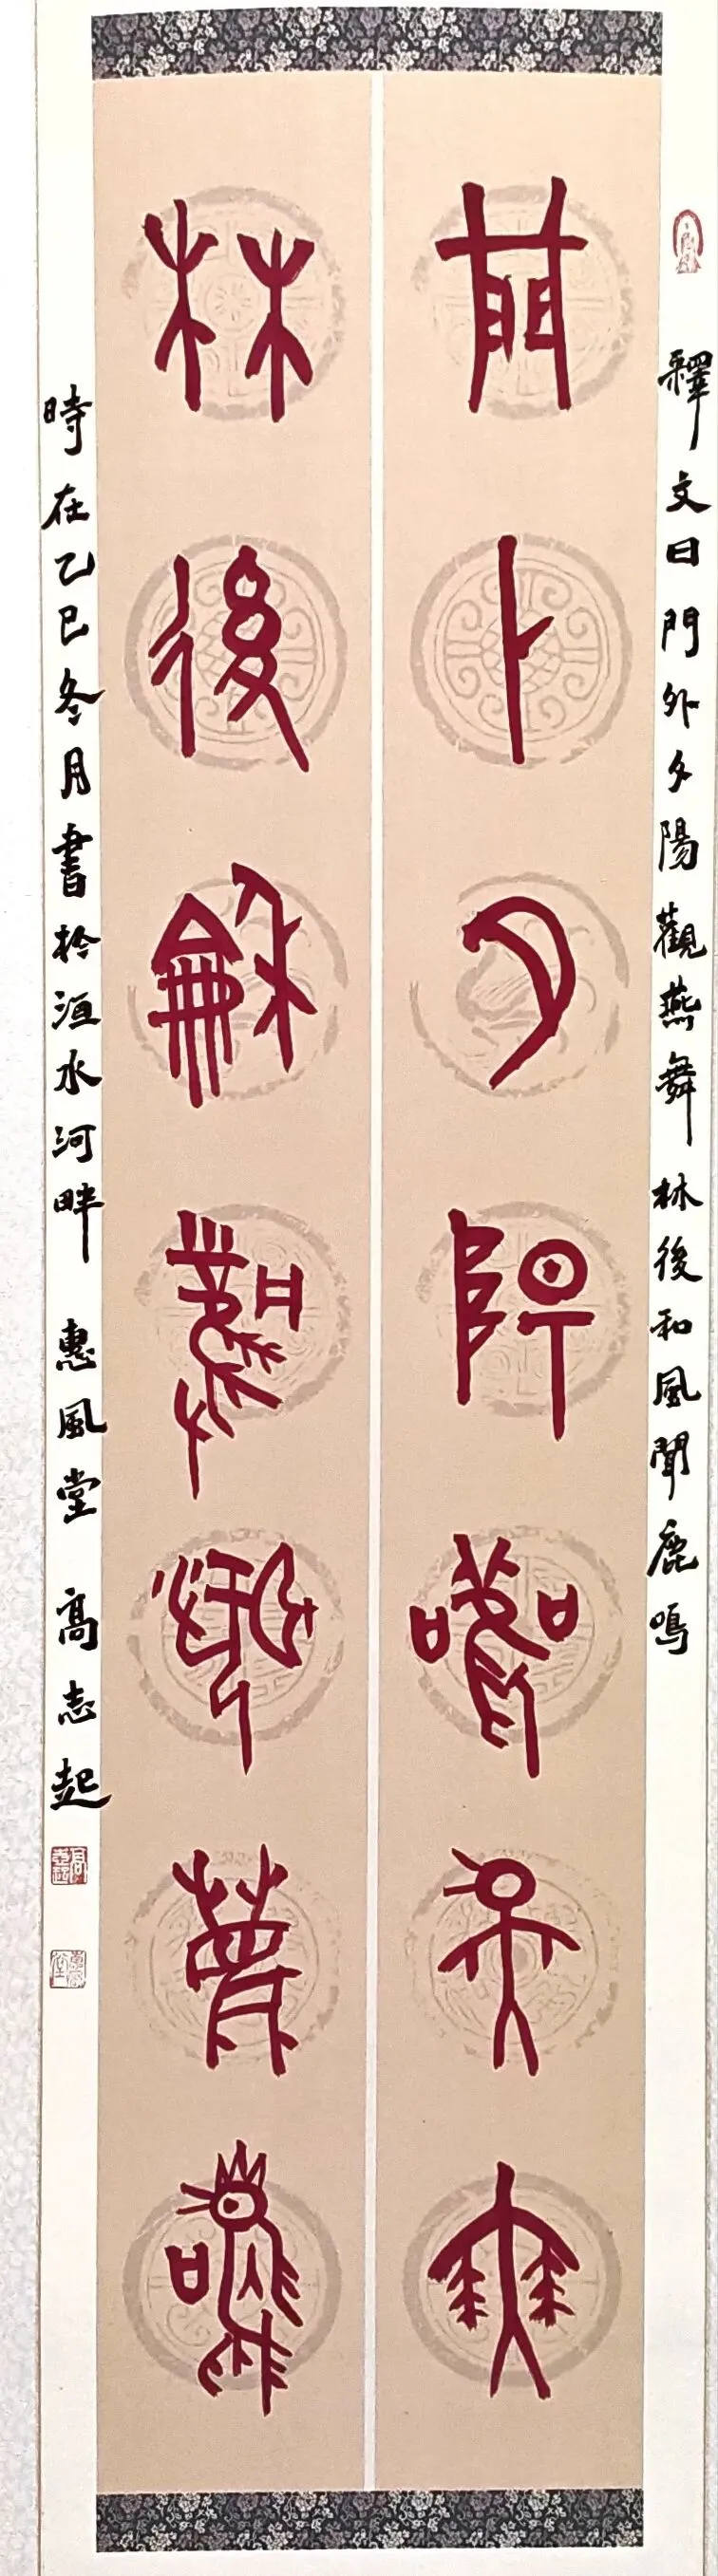 釋文曰門外夕陽觀燕舞林後和風聞鹿鳴
門外夕陽觀燕舞
林後和風聞鹿鳴
時在乙巳冬月書於洹水河畔 惠風堂 高志起